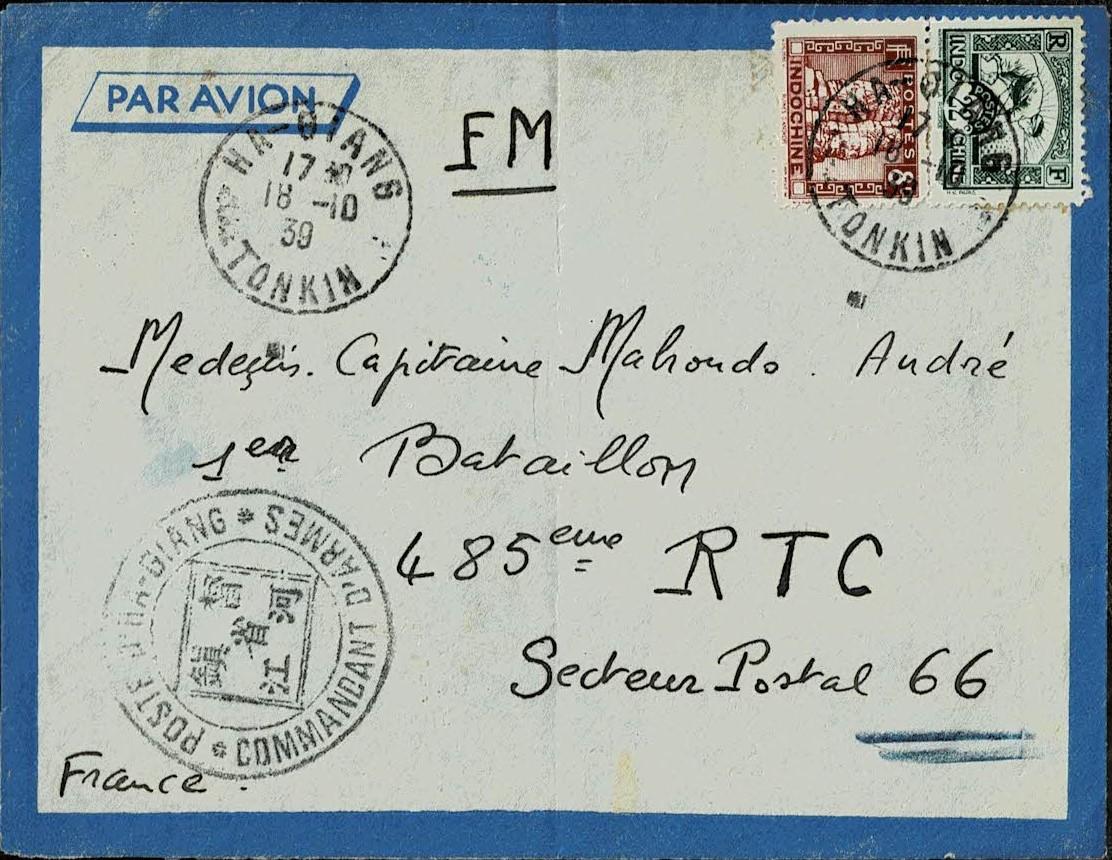 PAR AVION
FM
INDOCHINE
RF POSTES
INDOCHINE
POSTES
R F
HA-GIANG
17
18 -10
39
TONKIN
HA-GIANG
17
18 -10
39
TONKIN
Medeçin. Capitaine Mahoudo. André
1er Bataillon
485eme RTC
Secteur Postal 66
POSTE D'HA-GIANG * COMMANDANT D'ARMES *
河江
省
鎮
France.